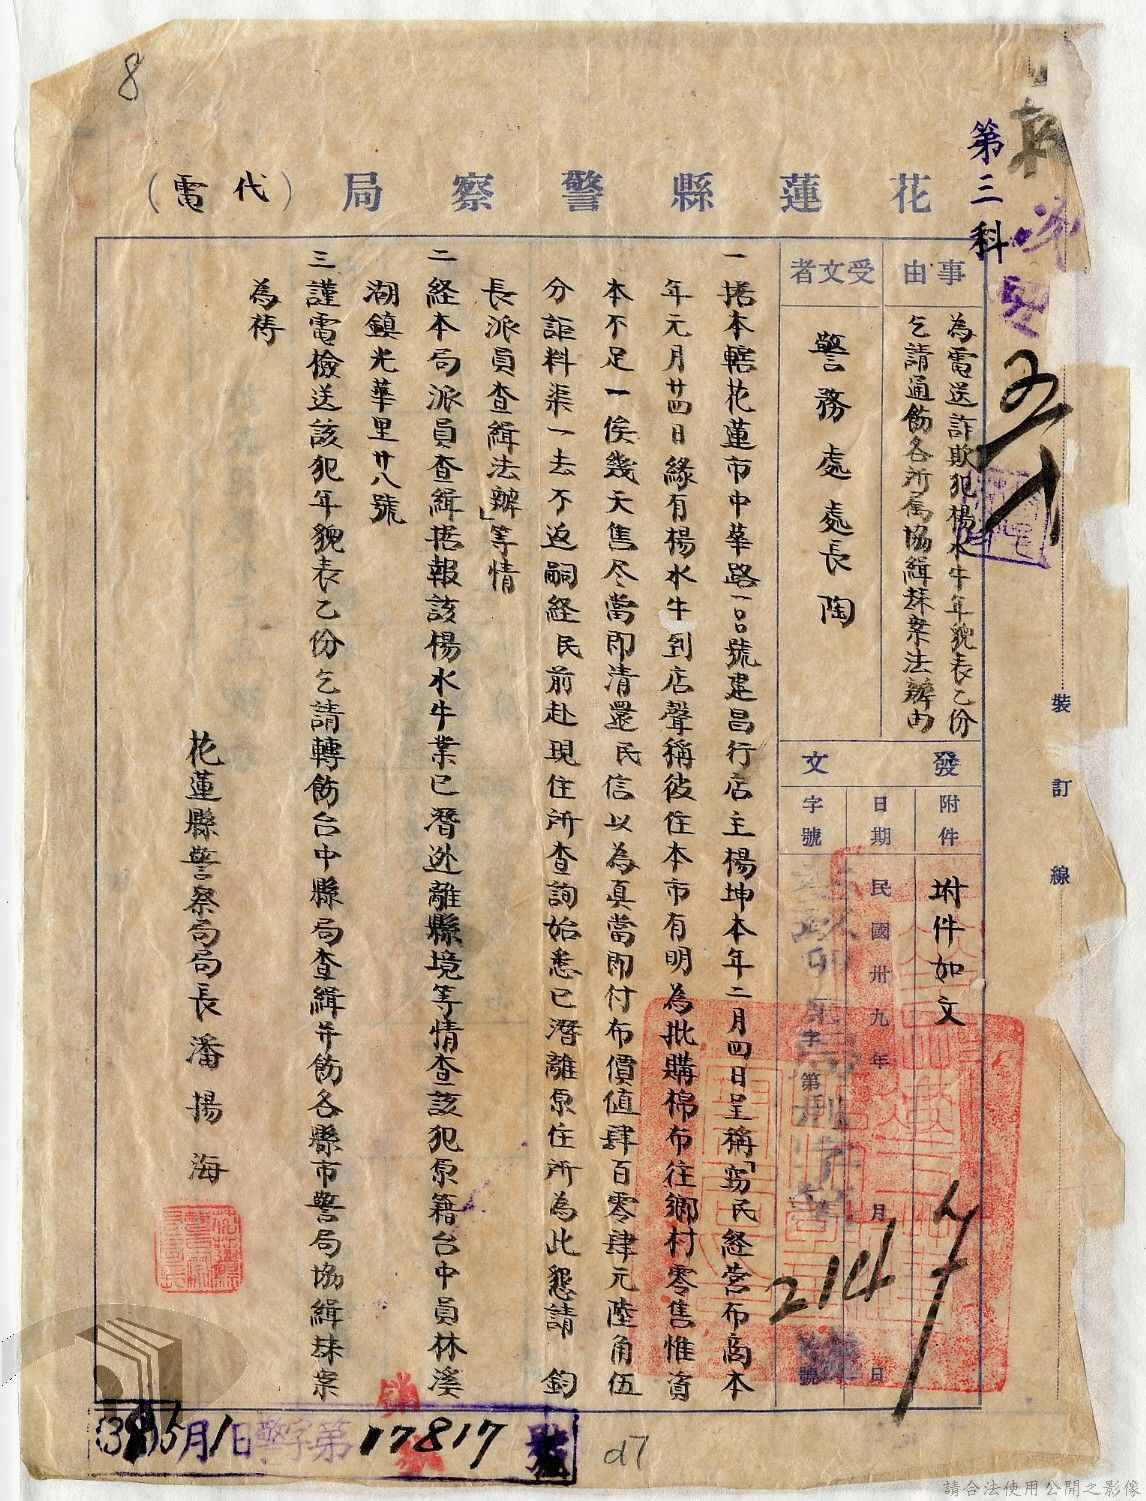 8
第三科
花蓮縣警察局(代電)
事由
為電送詐欺犯楊水牛年貌表乙份
乞請通飭各所属協緝禄案法辦由
受文者
警務處處長陶
發文
附件
附件如文
日期
民國卅九年 月 日
字號
字第 號
2147
一 据本轄花蓮市中華路一〇號建昌行店主楊坤本年二月四日呈稱「窃民経营布商本
年元月廿四日緣有楊水牛到店聲稱彼住本市有明為批購棉布往鄉村零售惟資
本不足一俟幾天售尽當即清還民信以為真當即付布價值肆百零肆元陸角伍
分詎料渠一去不返嗣経民前赴現住所查詢始悉已潛離原住所為此懇請 鈞
長派員查緝法辦」等情
二 経本局派員查緝据報該楊水牛業已潛逃離縣境等情查該犯原籍台中員林溪
湖鎮光華里廿八號
三 謹電檢送該犯年貌表乙份乞請轉飭台中縣局查緝并飭各縣市警局協緝禄案
為禱
花蓮縣警察局局長潘揚海
裝訂線
39 5月1日警字第17817號
d7
請合法使用公開之影像